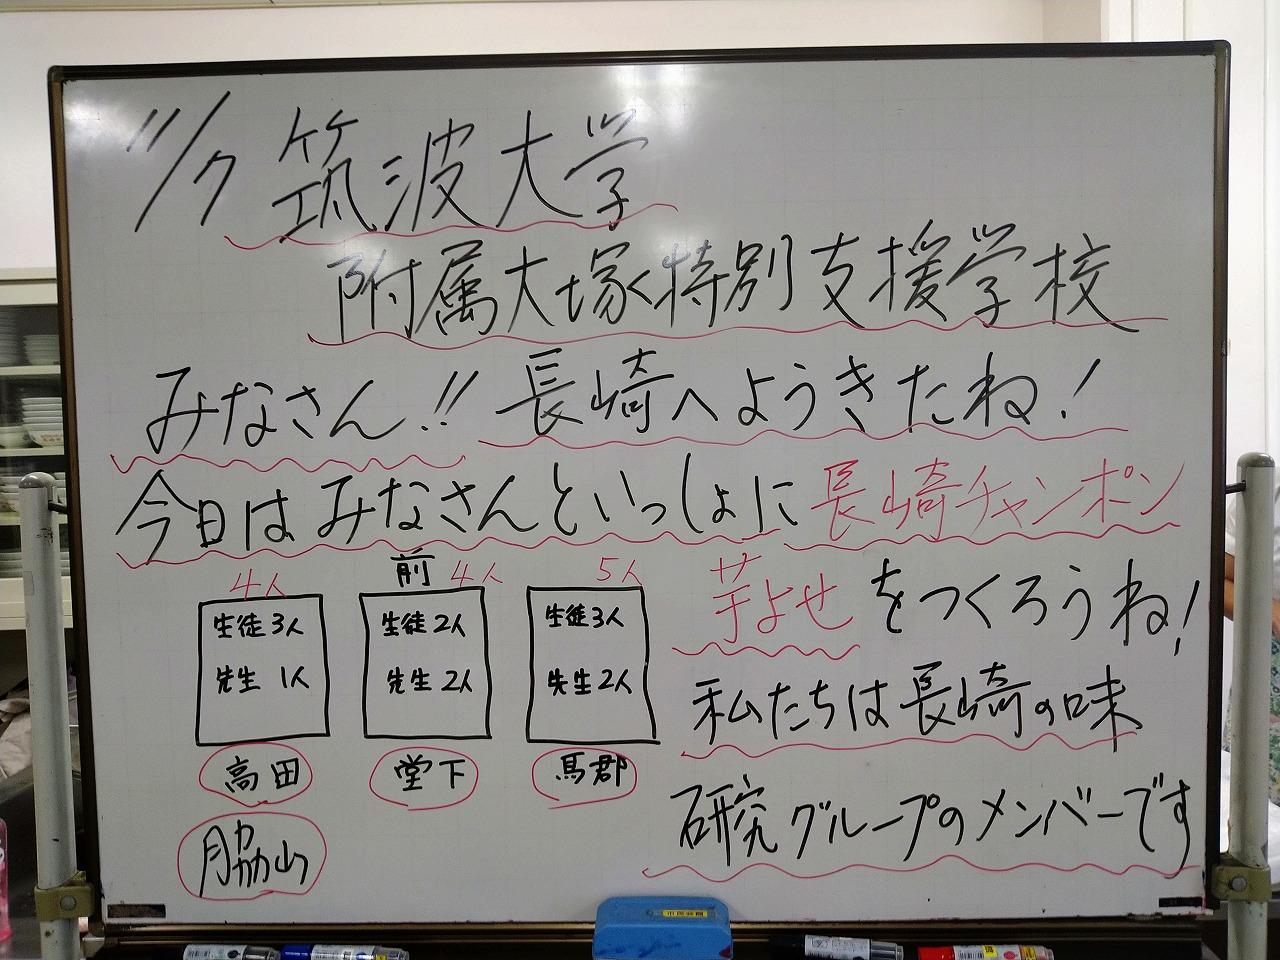 11/9 筑波大学
附属大塚特別支援学校
みなさん!! 長崎へようきたね!
今日はみなさんといっしょに長崎チャンポン
芋よせをつくろうね!
私たちは長崎の味
研究グループのメンバーです
前
4人
生徒3人
先生 1人
高田
脇山
4人
生徒2人
先生 2人
堂下
5人
生徒3人
先生2人
馬郡